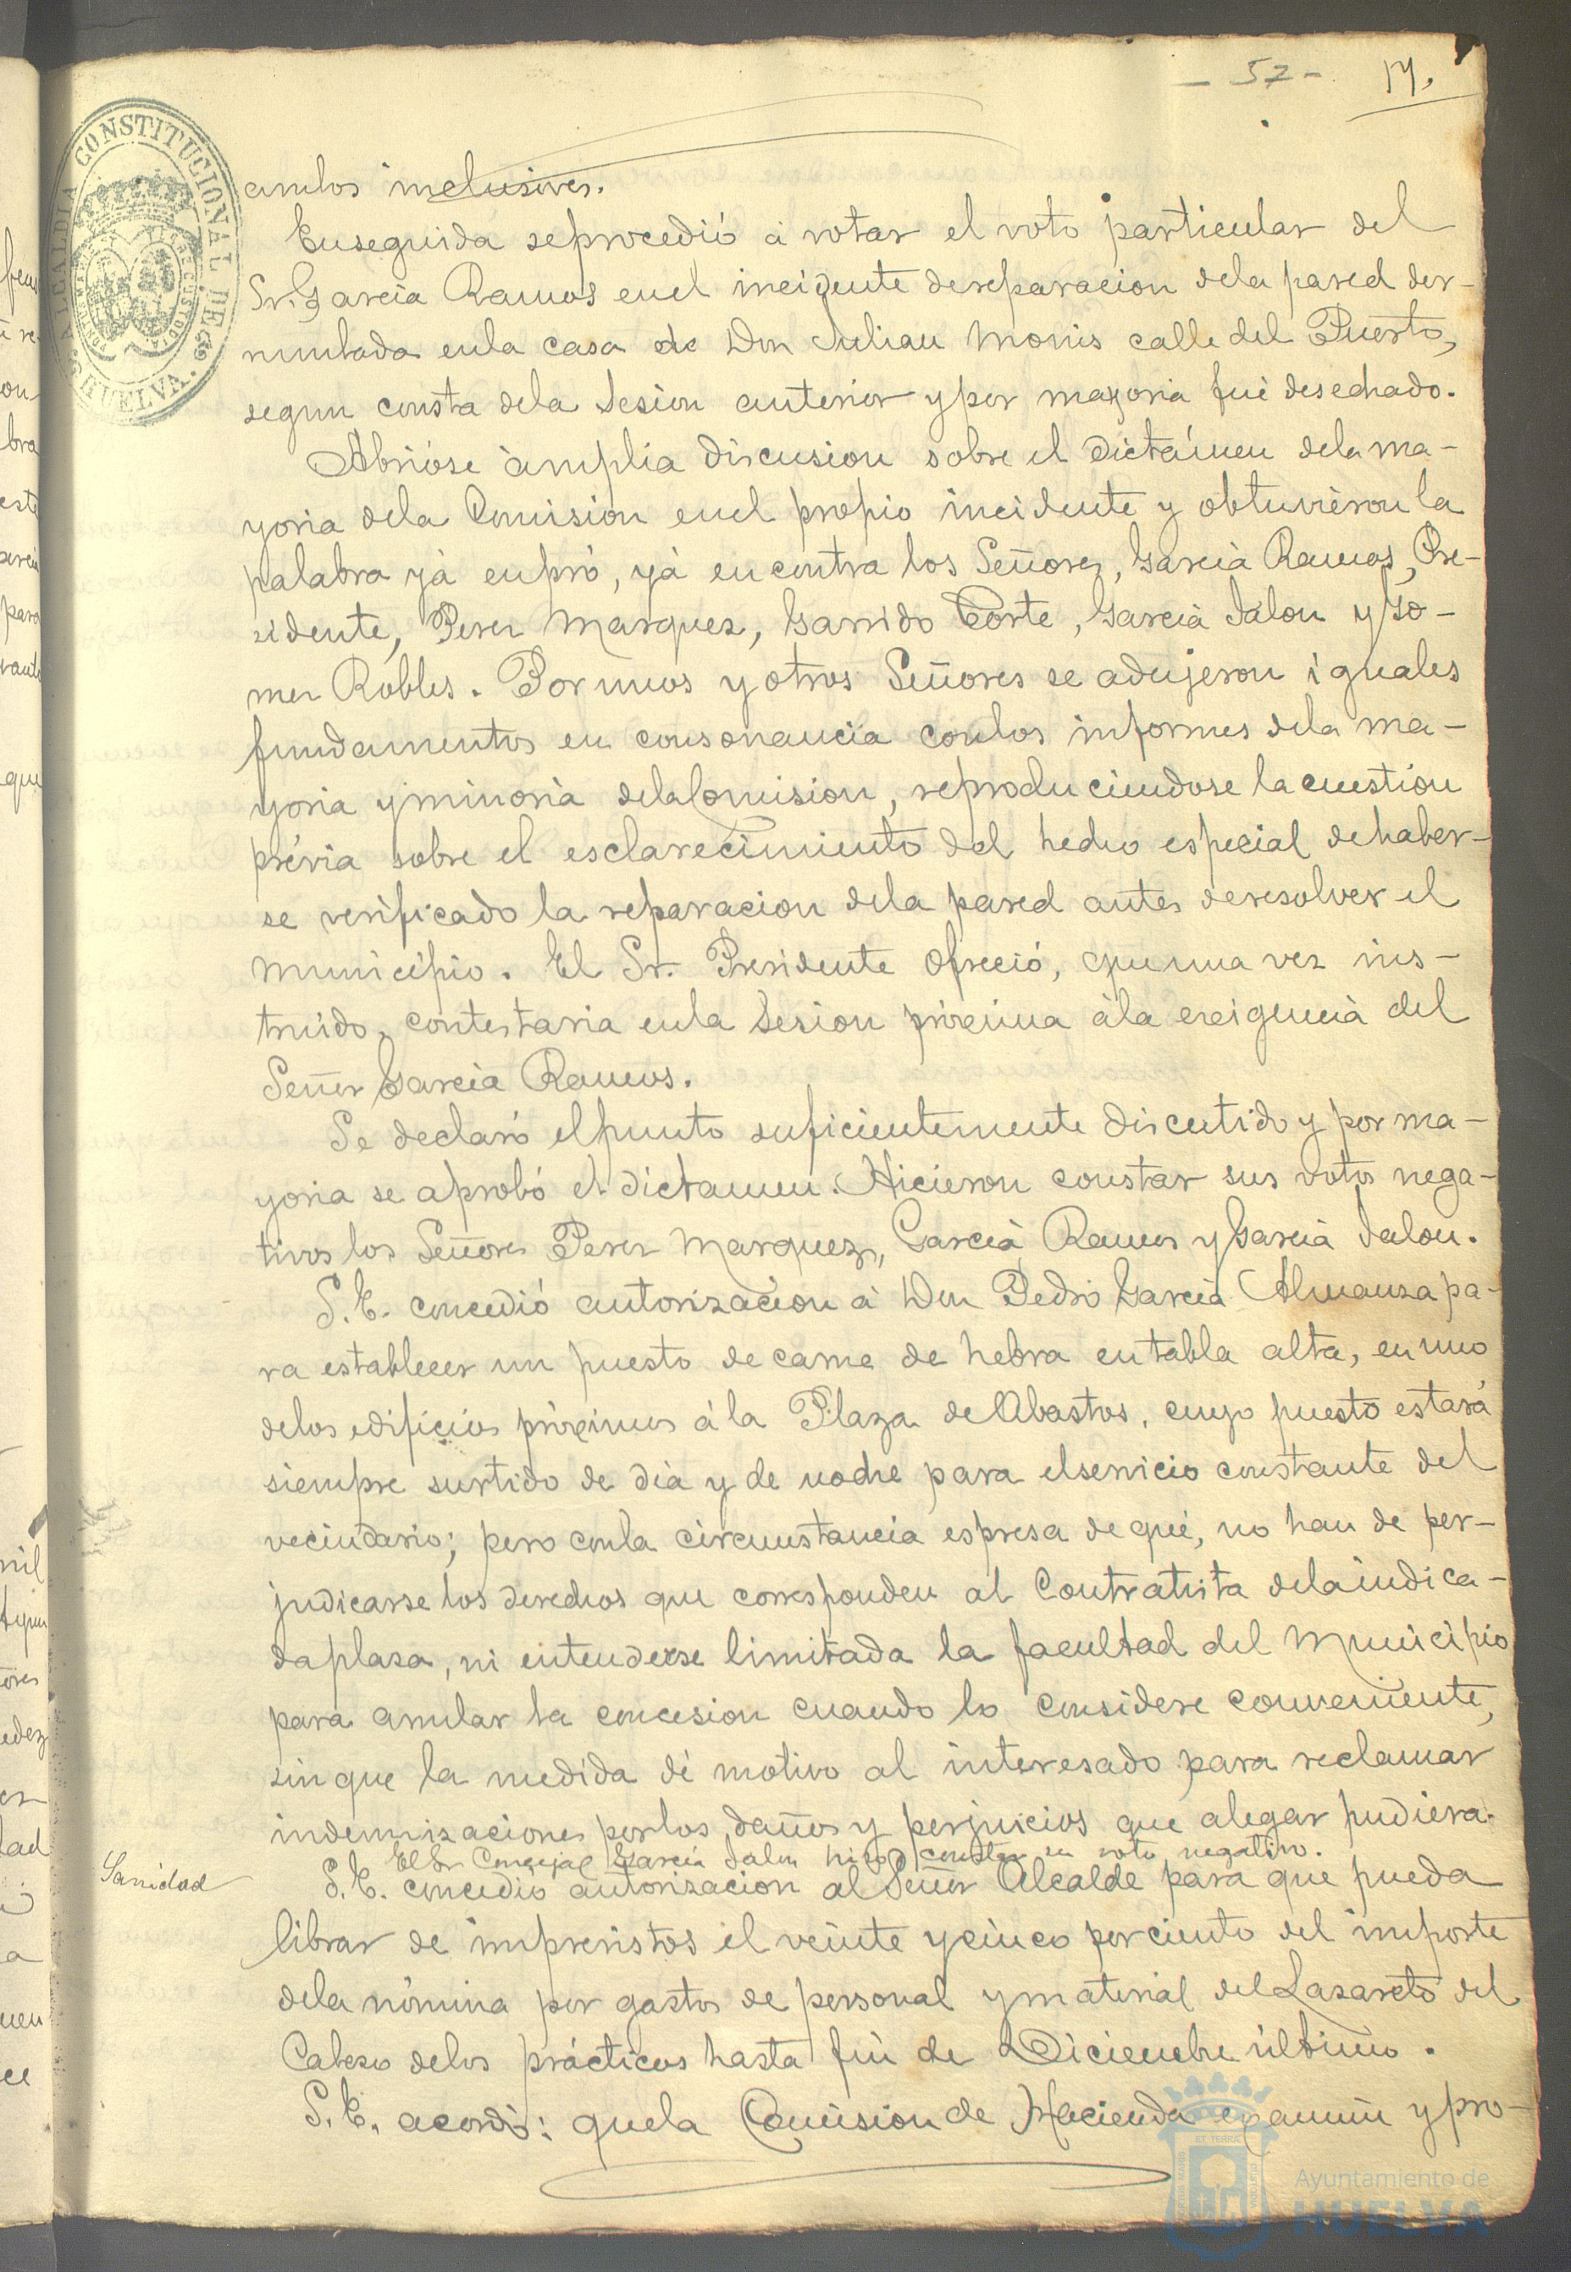 - 57 - 17.
ALCALDIA CONSTITUCIONAL DE HUELVA.
ambos inclusives.
Enseguida se procedió á votar el voto particular del
Sr. Garcia Ramos en el incidente de reparacion dela pared der-
rumbada enla casa de Don Julian Monis calle del Puerto,
segun consta dela Sesion anterior y por mayoria fué desechado.
Abrióse ámplia discusion sobre el dictámen dela ma-
yoria dela Comision enel propio incidente y obtuvieron la
palabra yá en pró, yá en contra los Señores, Garcia Ramos, Pre-
sidente, Perez Marquez, Garrido Corte, Garcia Jalon y Go-
mez Robles. Por unos y otros Señores se adujeron iguales
fundamentos en consonancia conlos informes dela ma-
yoria y minoria dela Comision, reproduciendose la cuestion
prévia sobre el esclarecimiento del hecho especial de haber-
se verificado la reparacion dela pared antes de resolver el
municipio. El Sr. Presidente ofreció, que una vez ins-
truido, contestaria enla Sesion próxima ála exigencia del
Señor Garcia Ramos.
Se declaró el punto suficientemente discutido y por ma-
yoria se aprobó el dictamen. Hicieron constar sus votos nega-
tivos los Señores Perez Marquez, Garcia Ramos y Garcia Jalon.
S. E. concedió autorizacion á Don Pedro Garcia Almanza pa-
ra establecer un puesto de carne de hebra en tabla alta, en uno
delos edificios próximos á la Plaza de Abastos, cuyo puesto estará
siempre surtido de dia y de noche para el servicio constante del
vecindario; pero conla circunstancia espresa de que, no han de per-
judicarse los derechos que corresponden al Contratista dela indica-
da plaza, ni entenderse limitada la facultad del Municipio
para anular la concesion cuando lo considere conveniente,
sin que la medida dé motivo al interesado para reclamar
indemnizaciones porlos daños y perjuicios que alegar pudiera.
El Sr Concejal Garcia Jalon hizo constar su voto negativo.
Sanidad
S. E. concedio autorizacion al Señor Alcalde para que pueda
librar de imprevistos el veinte y cinco por ciento del importe
dela nómina por gastos de personal y material del Lazareto del
Cabezo delos prácticos hasta fin de Diciembre último.
S. E. acordó: que la Comision de Hacienda examine y pro-
Ayuntamiento de
HUELVA